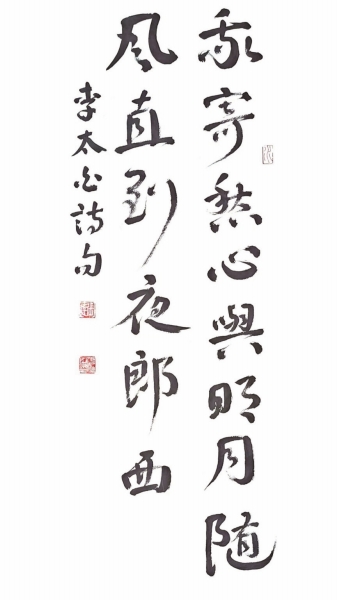 我寄愁心與明月随
风直到夜郎西
李太白詩句